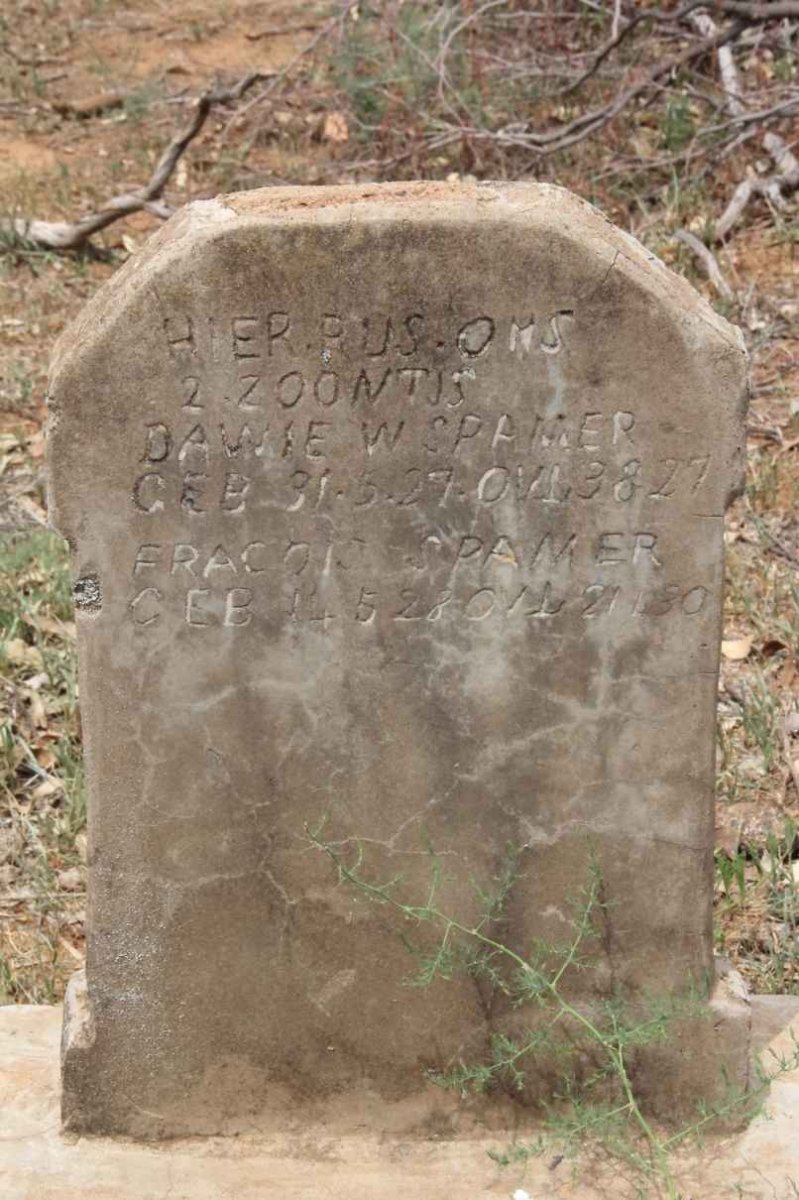 HIER.RUS.ONS
2.ZOONTJS
DAWIE W SPAMER
GEB 31.5.27.OVL.3.8.27
FRACOIS SPAMER
GEB 14 5 28 OVL 21 1 30